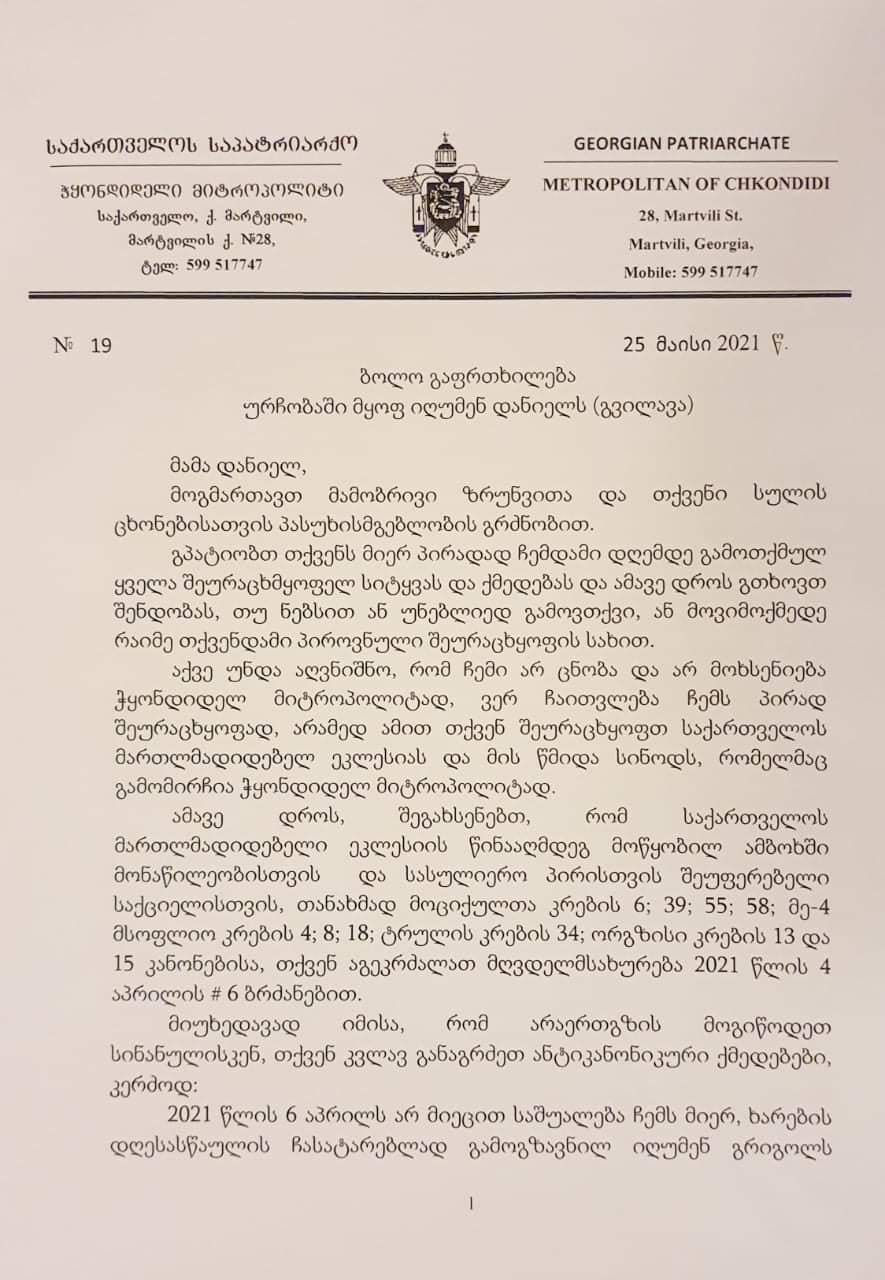 საქართველოს საპატრიარქო
ჭყონდიდელი მიტროპოლიტი
საქართველო, ქ. მარტვილი,
მარტვილის ქ. №28,
ტელ: 599 517747
GEORGIAN PATRIARCHATE
METROPOLITAN OF CHKONDIDI
28, Martvili St.
Martvili, Georgia,
Mobile: 599 517747
№ 19
25 მაისი 2021 წ.
ბოლო გაფრთხილება
ურჩობაში მყოფ იღუმენ დანიელს (გვილავა)
მამა დანიელ,
მოგმართავთ მამობრივი ზრუნვითა და თქვენი სულის
ცხონებისათვის პასუხისმგებლობის გრძნობით.
გპატიობთ თქვენს მიერ პირადად ჩემდამი დღემდე გამოთქმულ
ყველა შეურაცხმყოფელ სიტყვას და ქმედებას და ამავე დროს გთხოვთ
შენდობას, თუ ნებსით ან უნებლიედ გამოვთქვი, ან მოვიმოქმედე
რაიმე თქვენდამი პიროვნული შეურაცხყოფის სახით.
აქვე უნდა აღვნიშნო, რომ ჩემი არ ცნობა და არ მოხსენიება
ჭყონდიდელ მიტროპოლიტად, ვერ ჩაითვლება ჩემს პირად
შეურაცხყოფად, არამედ ამით თქვენ შეურაცხყოფთ საქართველოს
მართლმადიდებელ ეკლესიას და მის წმიდა სინოდს, რომელმაც
გამომირჩია ჭყონდიდელ მიტროპოლიტად.
ამავე დროს, შეგახსენებთ, რომ საქართველოს
მართლმადიდებელი ეკლესიის წინააღმდეგ მოწყობილ ამბოხში
მონაწილეობისთვის და სასულიერო პირისთვის შეუფერებელი
საქციელისთვის, თანახმად მოციქულთა კრების 6; 39; 55; 58; მე-4
მსოფლიო კრების 4; 8; 18; ტრულის კრების 34; ორგზისი კრების 13 და
15 კანონებისა, თქვენ აგეკრძალათ მღვდელმსახურება 2021 წლის 4
აპრილის # 6 ბრძანებით.
მიუხედავად იმისა, რომ არაერთგზის მოგიწოდეთ
სინანულისკენ, თქვენ კვლავ განაგრძეთ ანტიკანონიკური ქმედებები,
კერძოდ:
2021 წლის 6 აპრილს არ მიეცით საშუალება ჩემს მიერ, ხარების
დღესასწაულის ჩასატარებლად გამოგზავნილ იღუმენ გრიგოლს
1